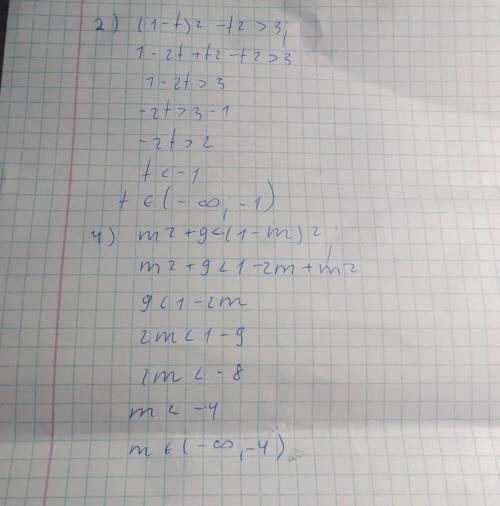 2) (1-t)2 -t2 >3;
1-2t+t2-t2>3
1-2t>3
-2t>3-1
-2t>2
t<-1
t ∈ (-∞; -1)
4) m2+9<(1-m)2;
m2+9<1-2m+m2
9<1-2m
2m<1-9
2m<-8
m<-4
m∈(-∞,-4)